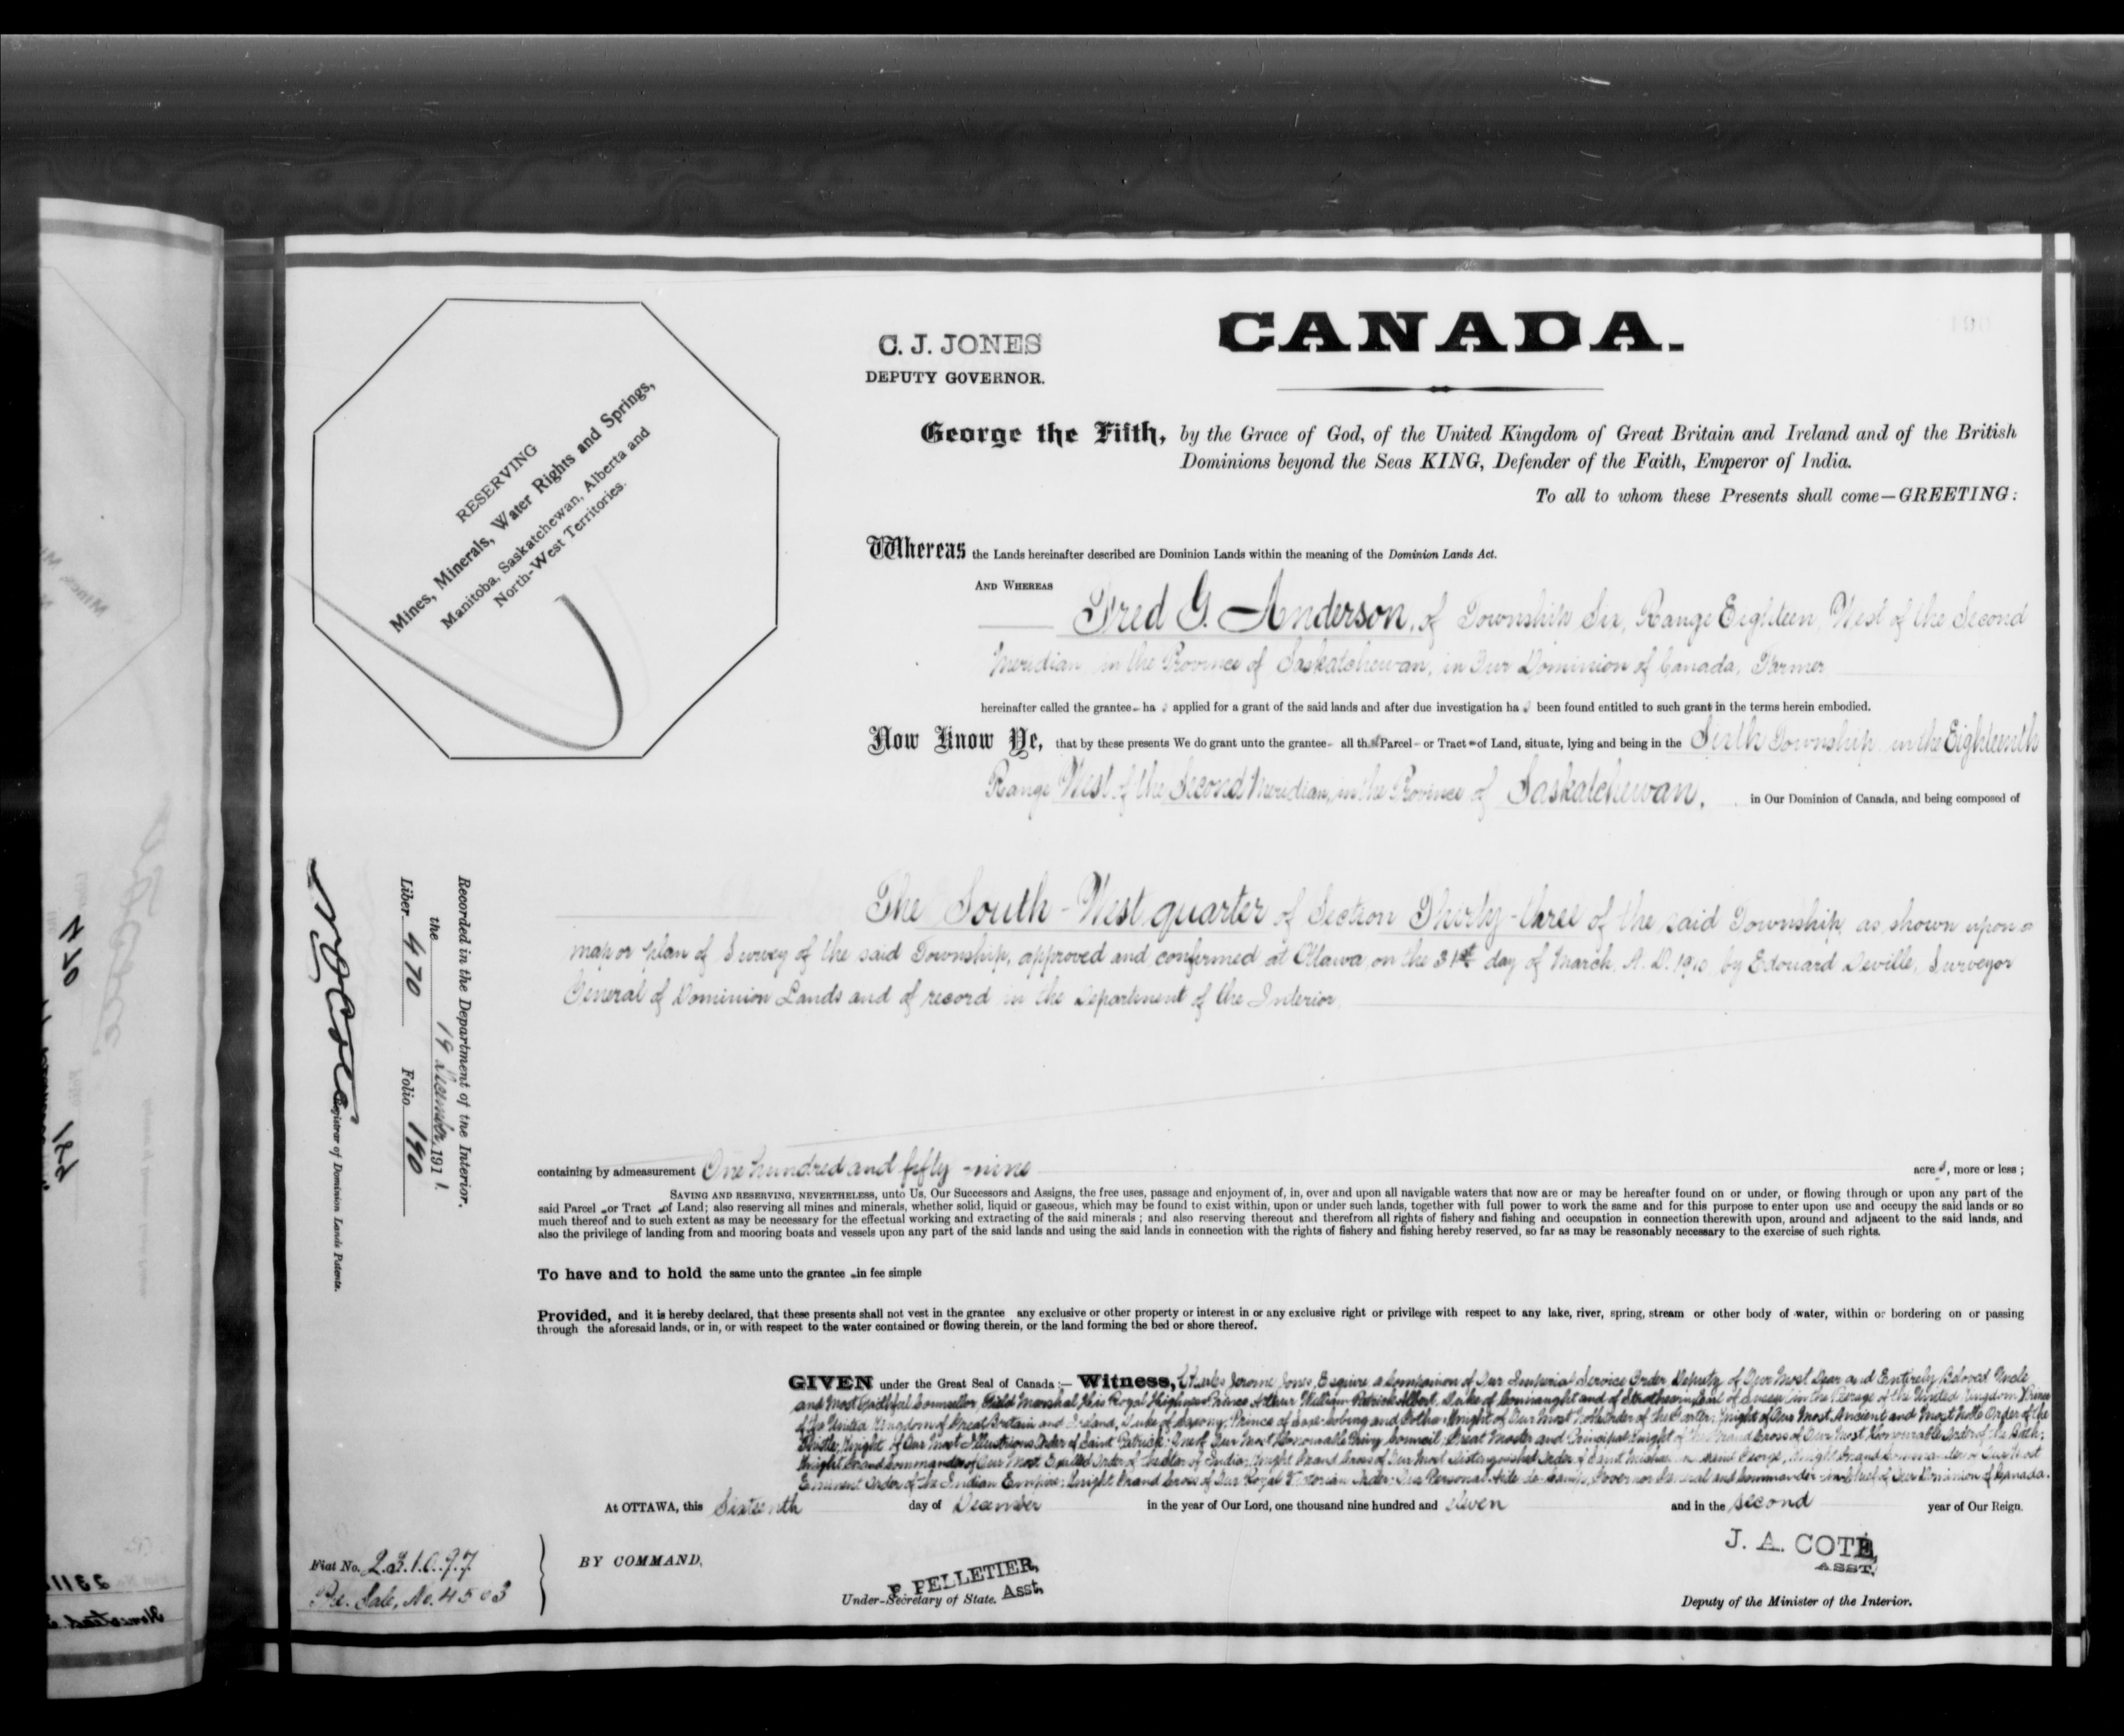 C. J. JONES
DEPUTY GOVERNOR.
CANADA.
RESERVING
Mines, Minerals, Water Rights and Springs,
Manitoba, Saskatchewan, Alberta and
North-West Territories.
George the Fifth, by the Grace of God, of the United Kingdom of Great Britain and Ireland and of the British
Dominions beyond the Seas KING, Defender of the Faith, Emperor of India.
To all to whom these Presents shall come—GREETING:
Whereas the Lands hereinafter described are Dominion Lands within the meaning of the Dominion Lands Act.
AND WHEREAS
Fred G. Anderson, of Township Six, Range Eighteen, West of the Second
Meridian in the Province of Saskatchewan, in Our Dominion of Canada, Farmer
hereinafter called the grantee ha s applied for a grant of the said lands and after due investigation ha s been found entitled to such grant in the terms herein embodied.
Now Know Ye, that by these presents We do grant unto the grantee all that Parcel or Tract of Land, situate, lying and being in the Sixth Township in the Eighteenth
Range West of the Second Meridian, in the Province of Saskatchewan, in Our Dominion of Canada, and being composed of
The South-West quarter of Section Thirty-three of the said Township, as shown upon a
map or plan of Survey of the said Township, approved and confirmed at Ottawa, on the 31st day of March, A. D. 1910, by Edouard Deville, Surveyor
General of Dominion Lands and of record in the Department of the Interior.
Recorded in the Department of the Interior.
the 19 December, 1911.
Liber 470 Folio 190
N O Coté
Registrar of Dominion Lands Patents.
containing by admeasurement One hundred and fifty-nine acres, more or less;
SAVING AND RESERVING, NEVERTHELESS, unto Us, Our Successors and Assigns, the free uses, passage and enjoyment of, in, over and upon all navigable waters that now are or may be hereafter found on or under, or flowing through or upon any part of the
said Parcel or Tract of Land; also reserving all mines and minerals, whether solid, liquid or gaseous, which may be found to exist within, upon or under such lands, together with full power to work the same and for this purpose to enter upon use and occupy the said lands or so
much thereof and to such extent as may be necessary for the effectual working and extracting of the said minerals; and also reserving thereout and therefrom all rights of fishery and fishing and occupation in connection therewith upon, around and adjacent to the said lands, and
also the privilege of landing from and mooring boats and vessels upon any part of the said lands and using the said lands in connection with the rights of fishery and fishing hereby reserved, so far as may be reasonably necessary to the exercise of such rights.
To have and to hold the same unto the grantee in fee simple
Provided, and it is hereby declared, that these presents shall not vest in the grantee any exclusive or other property or interest in or any exclusive right or privilege with respect to any lake, river, spring, stream or other body of water, within or bordering on or passing
through the aforesaid lands, or in, or with respect to the water contained or flowing therein, or the land forming the bed or shore thereof.
GIVEN under the Great Seal of Canada:— Witness, Charles Jerome Jones, Esquire, a Companion of Our Imperial Service Order, Deputy of Our Most Dear and Entirely Beloved Uncle
and Most Faithful Counsellor, Field Marshal His Royal Highness Prince Arthur William Patrick Albert, Duke of Connaught and of Strathearn, Earl of Sussex in the Peerage of the United Kingdom, Prince
of the United Kingdom of Great Britain and Ireland, Duke of Saxony, Prince of Saxe-Coburg and Gotha; Knight of Our Most Noble Order of the Garter; Knight of Our Most Ancient and Most Noble Order of the
Thistle; Knight of Our Most Illustrious Order of Saint Patrick; One of Our Most Honourable Privy Council; Great Master and Principal Knight of the Grand Cross of Our Most Honourable Order of the Bath;
Knight Grand Commander of Our Most Exalted Order of the Star of India; Knight Grand Cross of Our Most Distinguished Order of Saint Michael and Saint George; Knight Grand Commander of Our Most
Eminent Order of the Indian Empire; Knight Grand Cross of Our Royal Victorian Order; Our Personal Aide-de-Camp, Governor General and Commander-in-Chief of Our Dominion of Canada.
At OTTAWA, this Sixteenth day of December in the year of Our Lord, one thousand nine hundred and eleven and in the second year of Our Reign.
Fiat No. 231097
Pre. Sale, No. 4503
BY COMMAND,
P. PELLETIER,
Asst.
Under-Secretary of State.
J. A. COTÉ,
ASST.
Deputy of the Minister of the Interior.